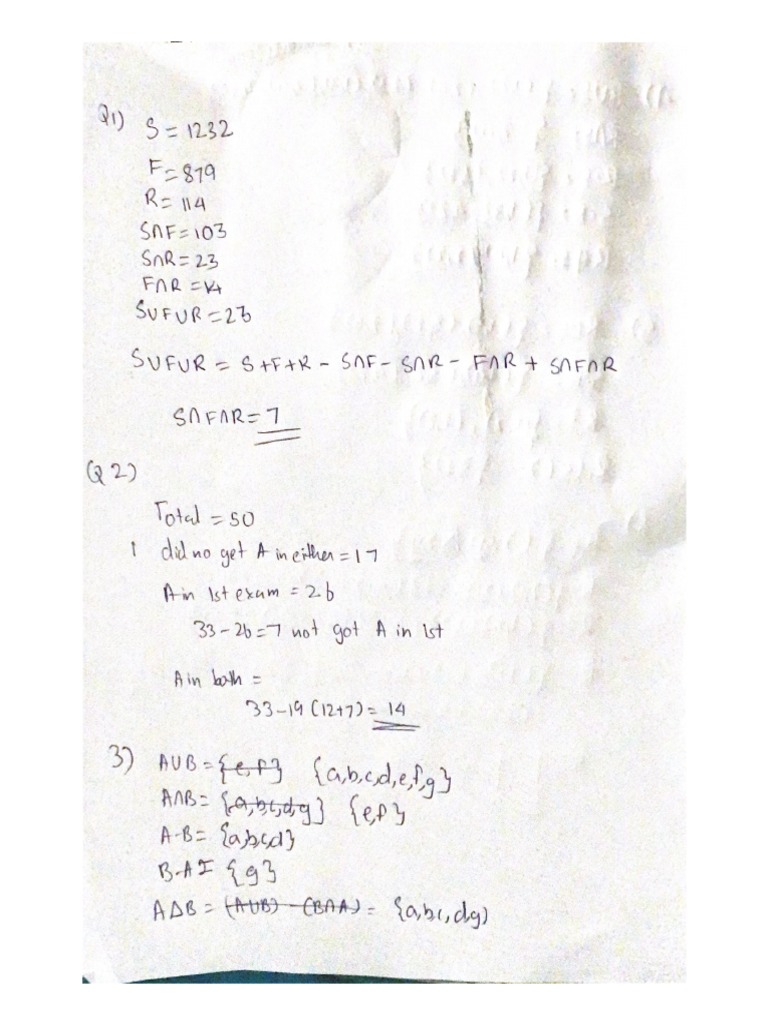 Q1)
S = 1232
F = 879
R = 114
S∩F = 103
S∩R = 23
F∩R = 14
S∪F∪R = 23
S∪F∪R = S+F+R - S∩F - S∩R - F∩R + S∩F∩R
S∩F∩R = 7
Q2)
Total = 50
did no get A in either = 17
A in 1st exam = 26
33-26=7 not got A in 1st
A in both =
33-19 (12+7) = 14
3) A∪B = {e,f} {a,b,c,d,e,f,g}
A∩B = {a,b,c,d,g} {e,f}
A-B = {a,b,c,d}
B-A = {g}
A∆B = (A∪B) - (B∩A) = {a,b,c,d,g)